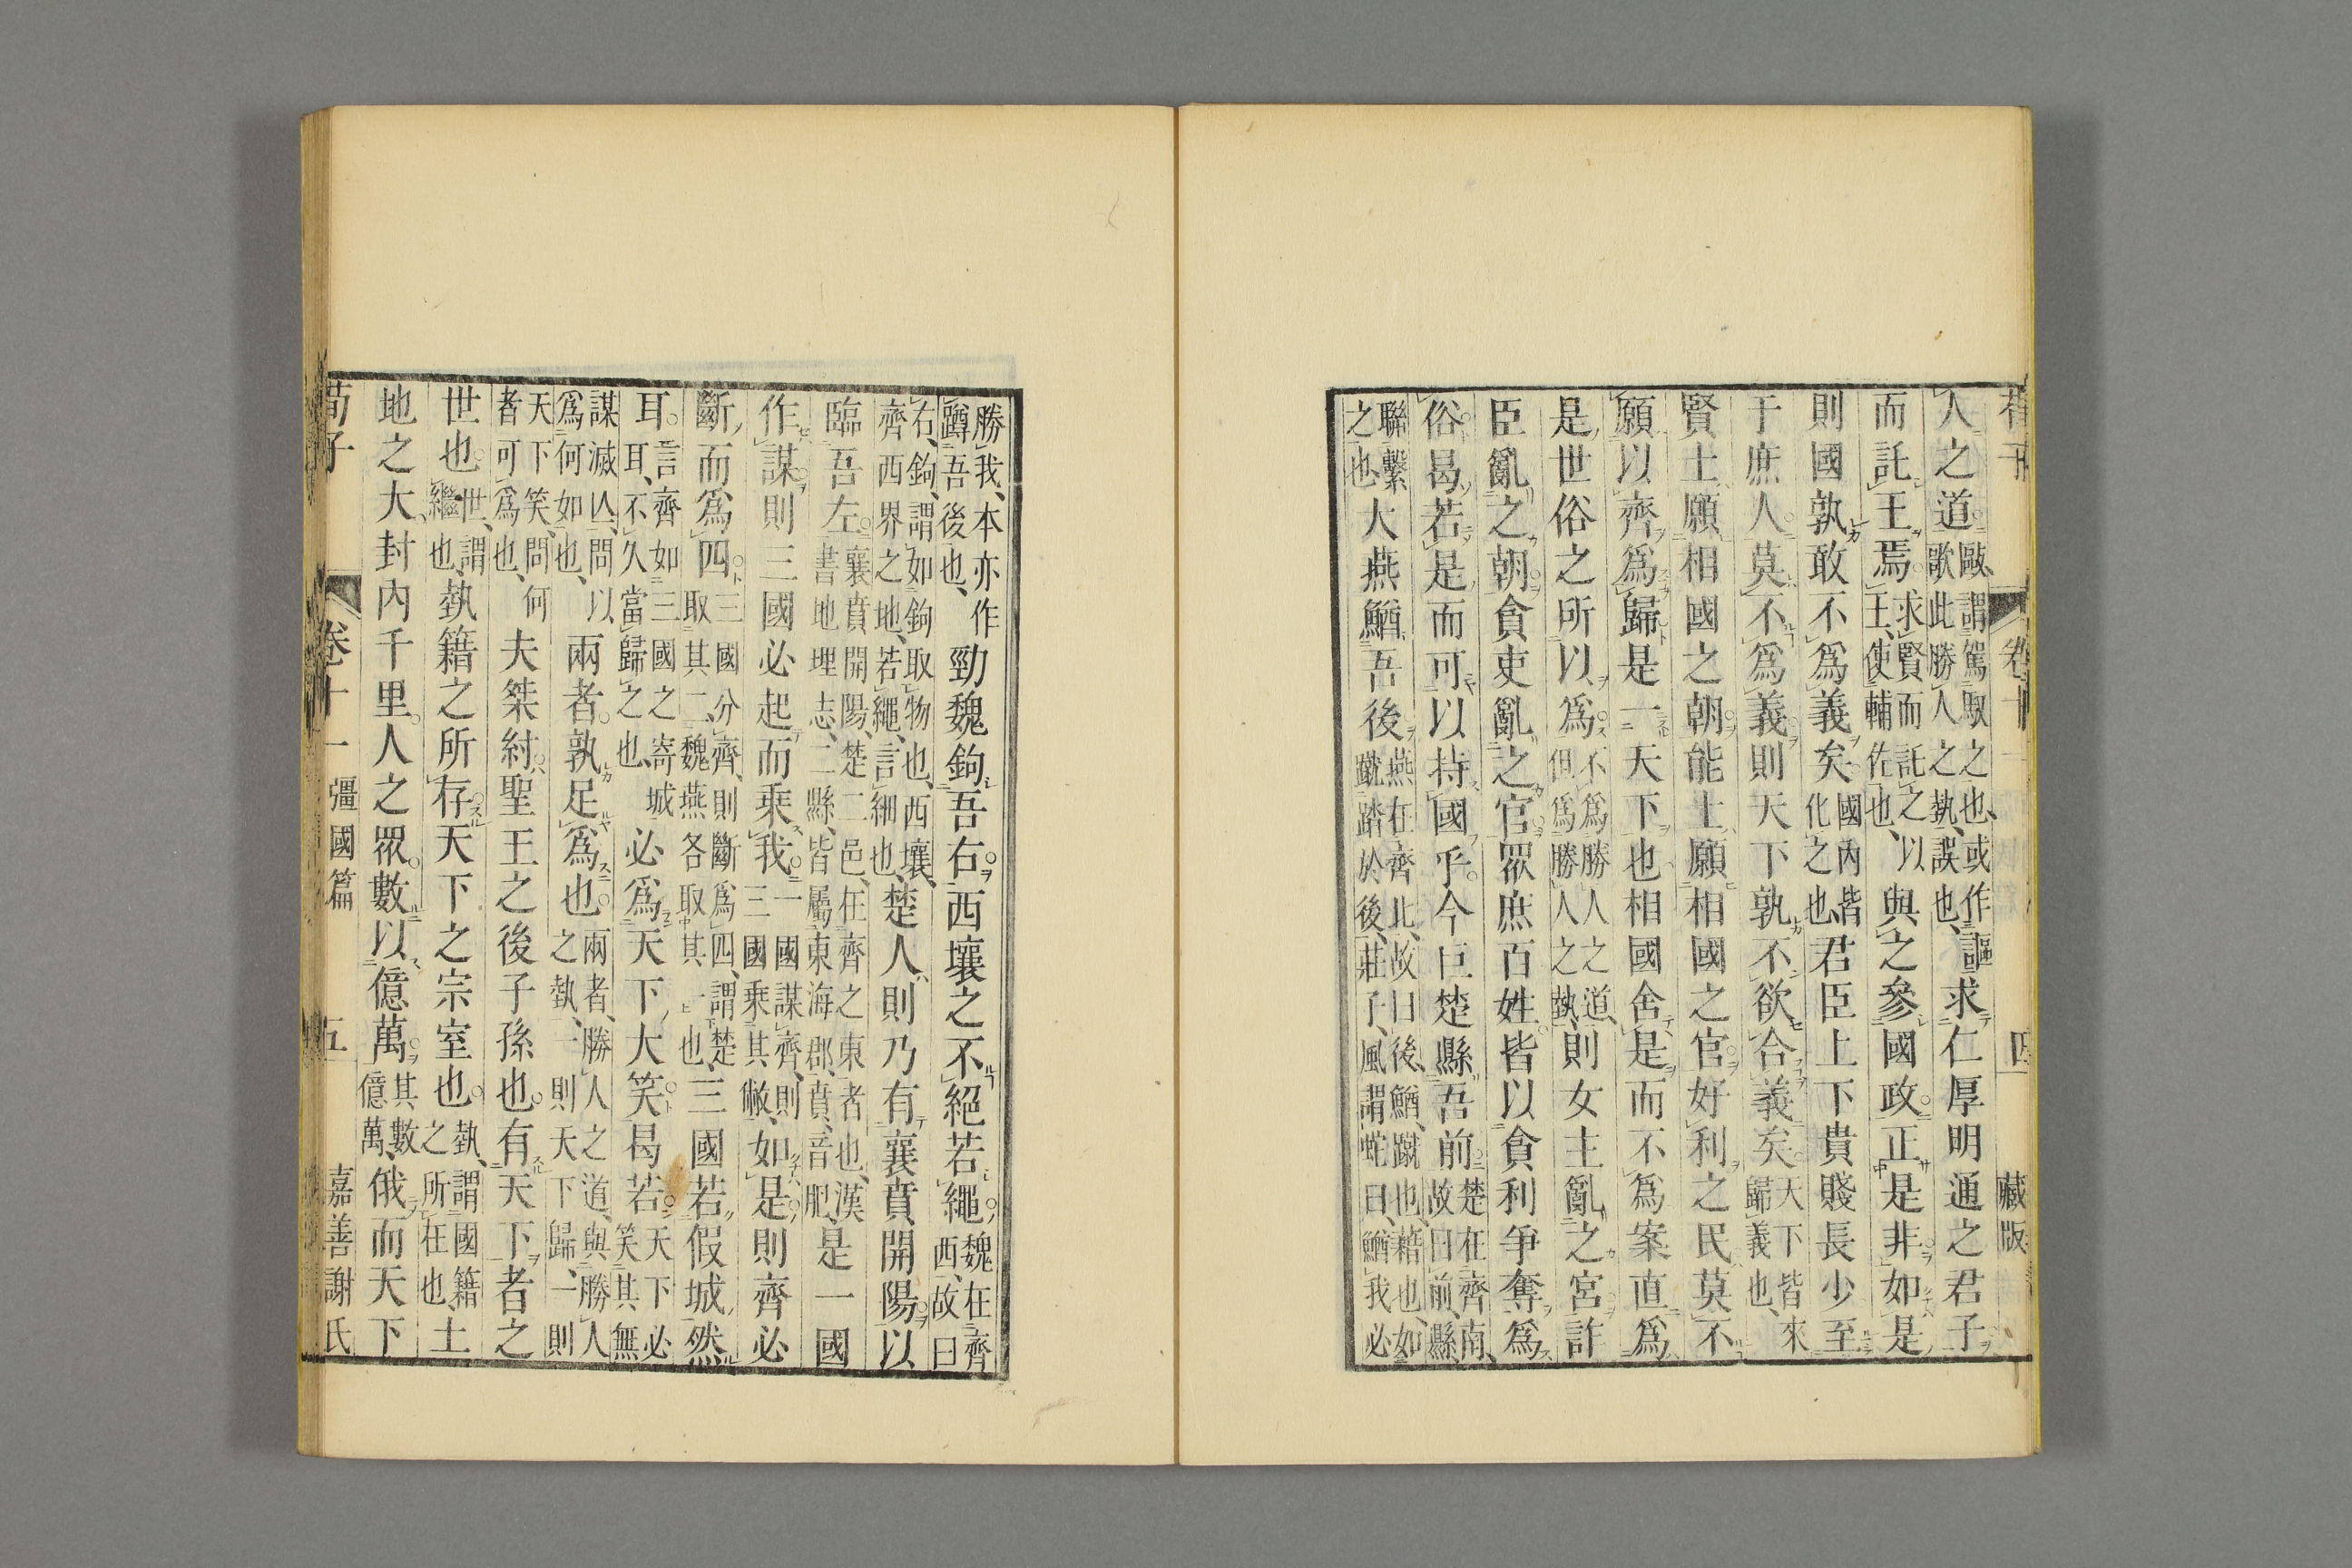 人之道歐謂駕馭之也或作謳歌此勝人之埶誤也求仁厚明通之君子
而託王焉求賢而託之以王使輔佐也與之參國政正是非如是
則國孰敢不爲義矣國內皆化之也君臣上下貴賤長少至
于庶人莫不爲義則天下孰不欲合義矣天下皆來歸義也
賢士願相國之朝能士願相國之官好利之民莫不
願以齊爲歸是一天下也相國舍是而不爲案直爲
是世俗之所以爲不爲勝人之道但爲勝人之埶則女主亂之宮詐
臣亂之朝貪吏亂之官眾庶百姓皆以貪利爭奪爲
俗曷若是而可以持國乎今巨楚縣吾前楚在齊南故曰前縣
聯繫之也大燕鰌吾後燕在齊北故曰後鰌蹴也藉也如蹴踏於後莊子風謂蛇曰鰌我必
勝我本亦作蹲吾後也勁魏鉤吾右西壤之不絕若繩魏在齊西故曰
右鉤謂如鉤取物也西壤齊西界之地若繩言細也楚人則乃有襄賁開陽以
臨吾左襄賁開陽楚二邑在齊之東者也漢書地理志二縣皆屬東海郡賁音肥是一國
作謀則三國必起而乘我一國謀齊則三國乘其敝如是則齊必
斷而爲四三國分齊則斷爲四謂楚取其二魏燕各取其一也三國若假城然
耳言齊如三國之寄城耳不久當歸之也必爲天下大笑曷若天下必笑其無
謀滅亾問以爲何如也兩者孰足爲也兩者勝人之道與勝人之埶一則天下歸一則
天下笑問何者可爲也夫桀紂聖王之後子孫也有天下者之
世也世謂繼也埶籍之所存天下之宗室也埶謂國籍之所在也土
地之大封內千里人之眾數以億萬其數億萬俄而天下
荀子 卷十一 彊國篇 五 嘉善謝氏